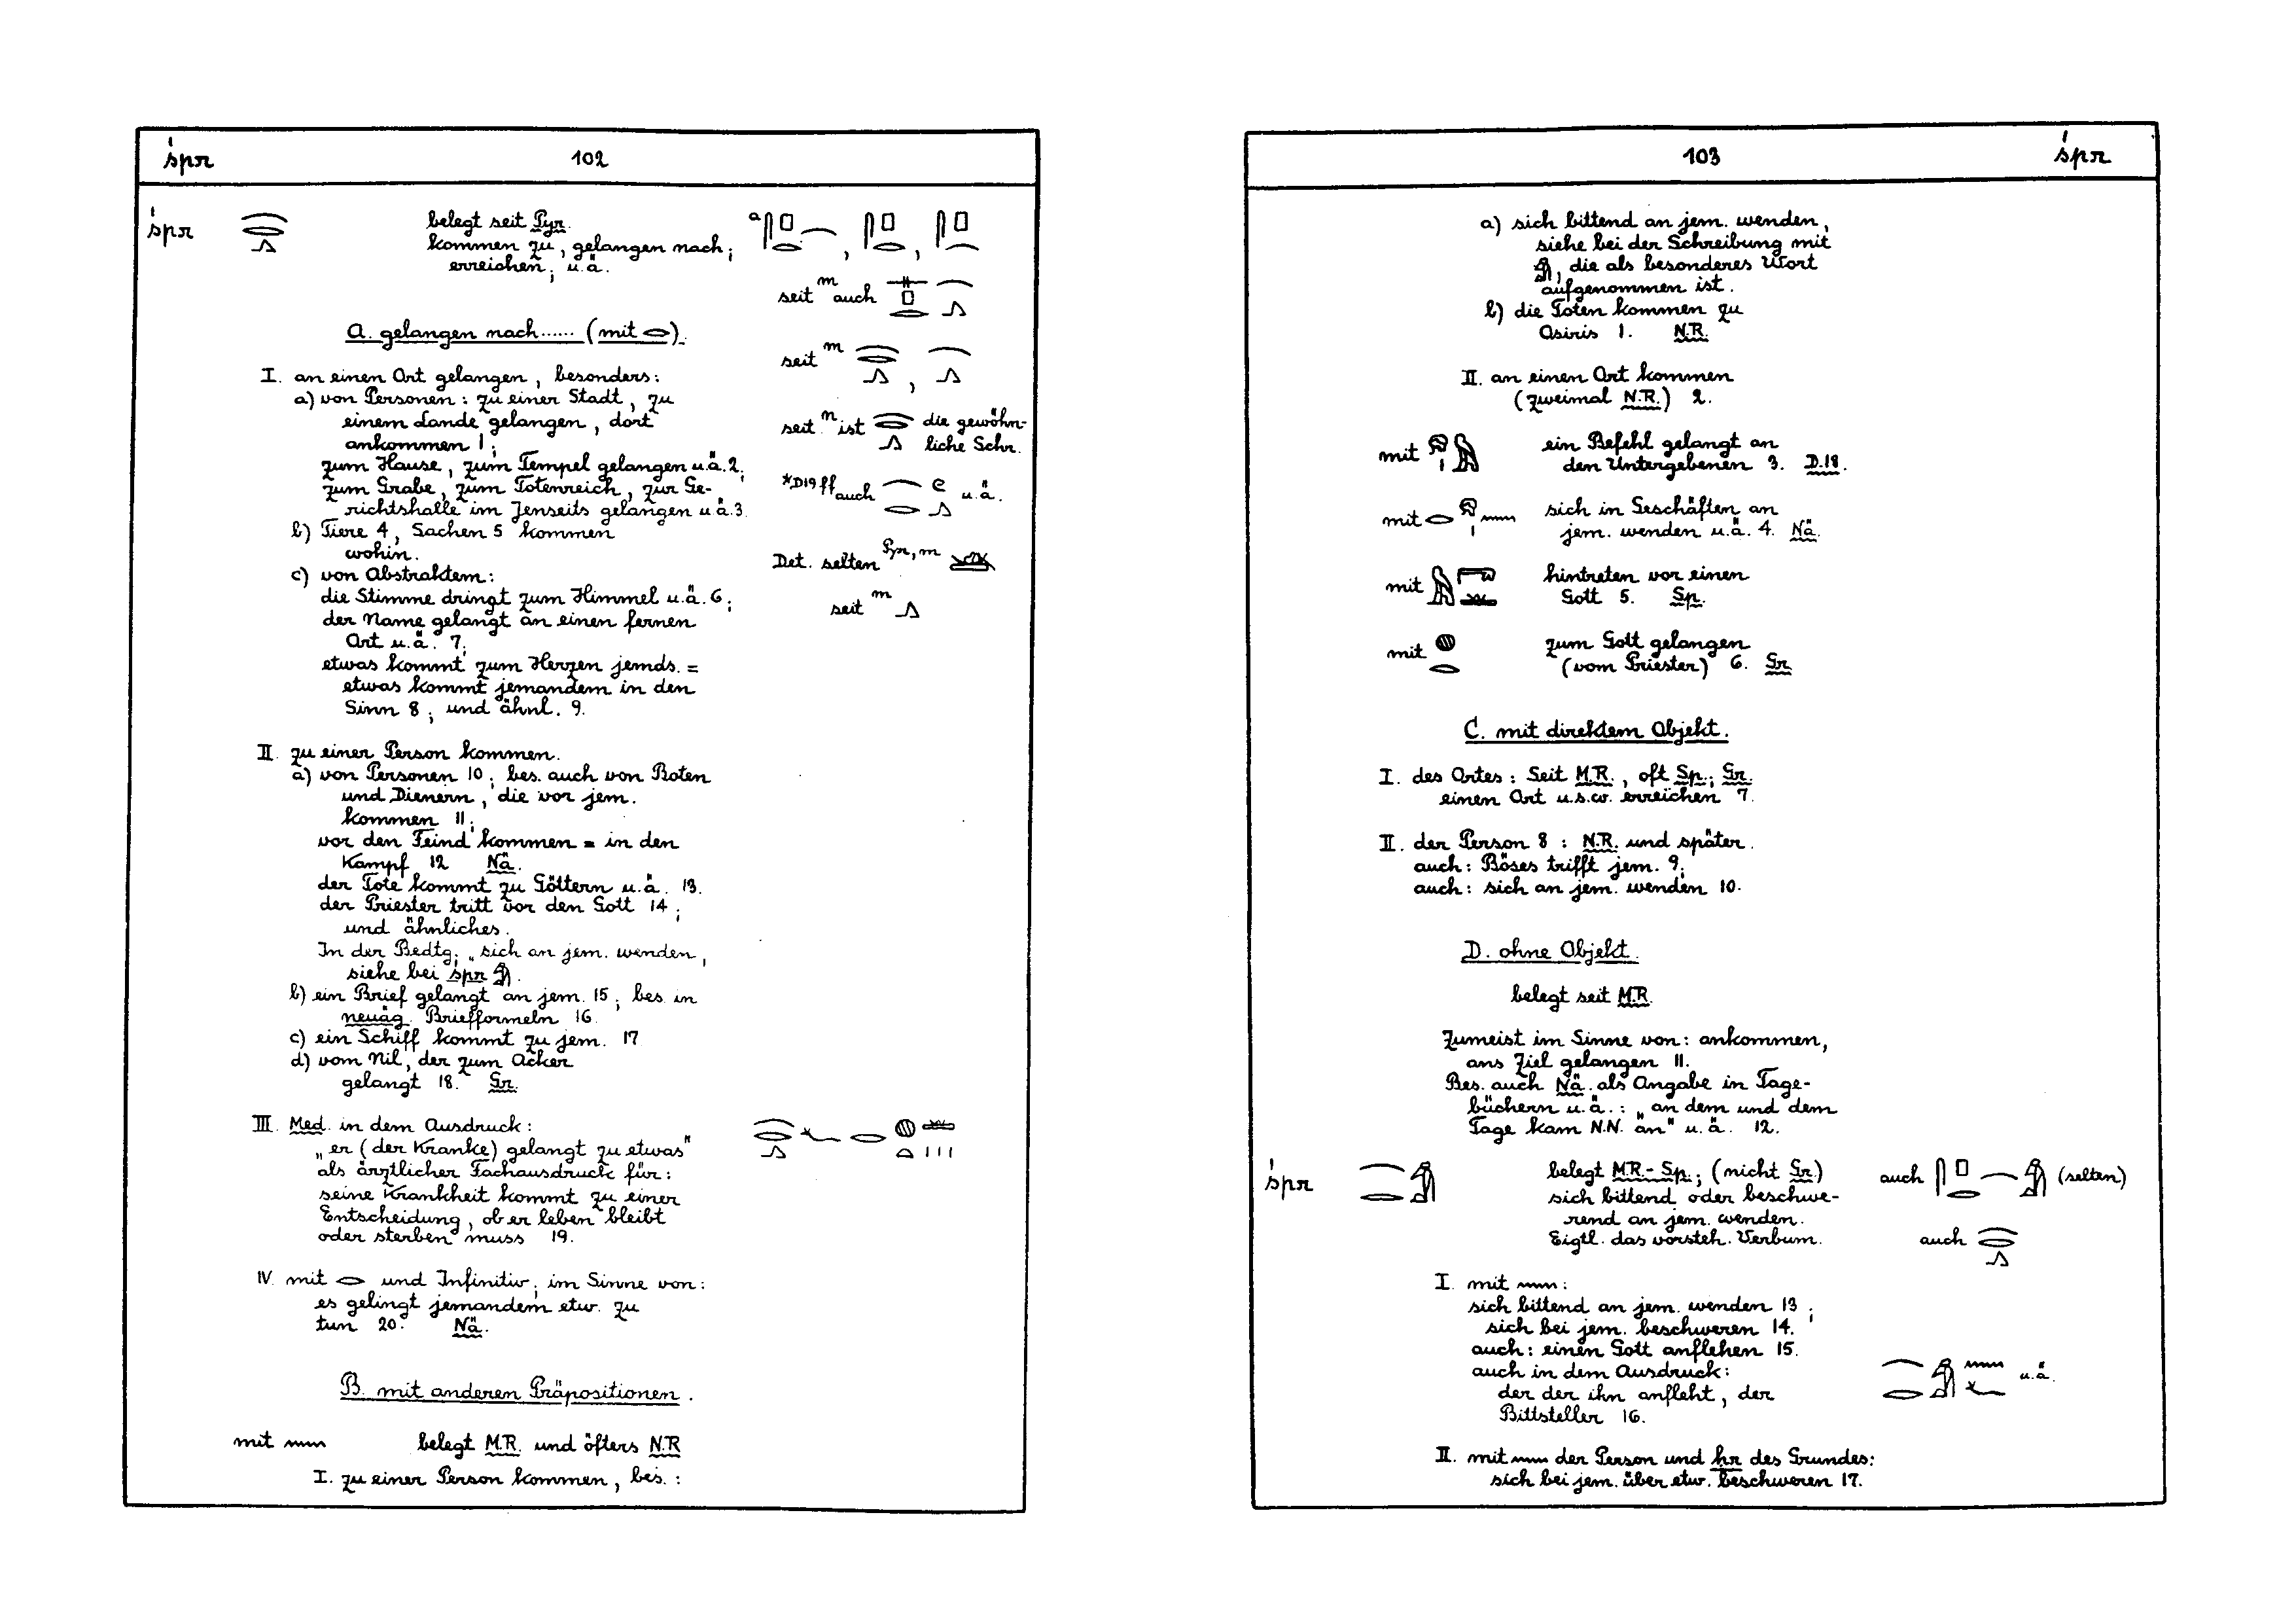 śpr 102
śpr belegt seit Pyr.
kommen zu, gelangen nach;
erreichen; u.ä.
seit auch
A. gelangen nach...... (mit 𓂋).
seit
I. an einen Ort gelangen, besonders:
a) von Personen: zu einer Stadt, zu
einem Lande gelangen, dort
ankommen 1;
seit ist die gewöhn-
liche Schr.
zum Hause, zum Tempel gelangen u.ä. 2;
zum Grabe, zum Totenreich, zur Ge-
richtshalle im Jenseits gelangen u.ä. 3.
*D19 ff auch u.ä.
b) Tiere 4, Sachen 5 kommen
wohin.
Det. selten Pyr, m
c) von Abstraktem:
die Stimme dringt zum Himmel u.ä. 6;
seit m 𓂻
der Name gelangt an einen fernen
Ort u.ä. 7;
etwas kommt zum Herzen jemds. =
etwas kommt jemandem in den
Sinn 8; und ähnl. 9.
II. zu einer Person kommen.
a) von Personen 10; bes. auch von Boten
und Dienern, die vor jem.
kommen 11;
vor den Feind kommen = in den
Kampf 12 Nä.
der Tote kommt zu Göttern u.ä. 13.
der Priester tritt vor den Gott 14;
und ähnliches.
In der Bedtg. „sich an jem. wenden,
siehe bei spr 𓀁.
b) ein Brief gelangt an jem. 15; bes. in
neuäg. Briefformeln 16.
c) ein Schiff kommt zu jem. 17
d) vom Nil, der zum Acker
gelangt 18. Gr.
III. Med. in dem Ausdruck:
„er (der Kranke) gelangt zu etwas"
als ärztlicher Fachausdruck für:
seine Krankheit kommt zu einer
Entscheidung, ob er leben bleibt
oder sterben muss 19.
IV. mit 𓂋 und Infinitiv; im Sinne von:
es gelingt jemandem etw. zu
tun 20. Nä.
B. mit anderen Präpositionen.
mit 𓈖 belegt M.R. und öfters N.R
I. zu einer Person kommen, bes.:
103 śpr
a) sich bittend an jem. wenden,
siehe bei der Schreibung mit
𓀁, die als besonderes Wort
aufgenommen ist.
b) die Toten kommen zu
Osiris 1. N.R.
II. an einen Ort kommen
(zweimal N.R.) 2.
mit ein Befehl gelangt an
den Untergebenen 3. D.18.
mit 𓂋𓁷𓏤𓈖 sich in Geschäften an
jem. wenden u.ä. 4. Nä.
mit hintreten vor einen
Gott 5. Sp.
mit 𓐍𓂋 zum Gott gelangen
(vom Priester) 6. Gr.
C. mit direktem Objekt.
I. des Ortes: Seit M.R., oft Sp.; Gr.
einen Ort u.s.w. erreichen 7.
II. der Person 8: N.R. und später.
auch: Böses trifft jem. 9;
auch: sich an jem. wenden 10.
D. ohne Objekt.
belegt seit M.R.
Zumeist im Sinne von: ankommen,
ans Ziel gelangen 11.
Bes. auch Nä. als Angabe in Tage-
büchern u.ä.: „an dem und dem
Tage kam N.N. an" u.ä. 12.
śpr belegt M.R.-Sp.; (nicht Gr.) auch (selten)
sich bittend oder beschwe-
rend an jem. wenden.
Eigtl. das vorsteh. Verbum. auch
I. mit 𓈖:
sich bittend an jem. wenden 13;
sich bei jem. beschweren 14.
auch: einen Gott anflehen 15.
auch in dem Ausdruck: u.ä.
der der ihn anfleht, der
Bittsteller 16.
II. mit 𓈖 der Person und ḥr des Grundes:
sich bei jem. über etw. beschweren 17.